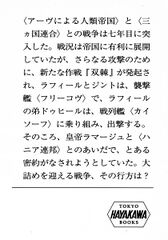 〈アーヴによる人類帝国〉と〈三
ヵ国連合〉との戦争は七年目に突
入した。戦況は帝国に有利に展開
していたが、さらなる攻撃のため
に、新たな作戦『双棘』が発起さ
れ、ラフィールとジントは、襲撃
艦〈フリーコヴ〉で、ラフィール
の弟ドゥヒールは、戦列艦〈カイ
ソーフ〉に乗り組み、出撃する。
そのころ、皇帝ラマージュと〈ハ
ニア連邦〉とのあいだで、とある
密約がなされようとしていた。大
詰めを迎える戦争、その行方は？
TOKYO
HAYAKAWA
BOOKS